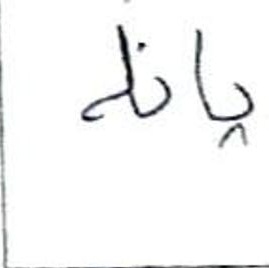 پانله